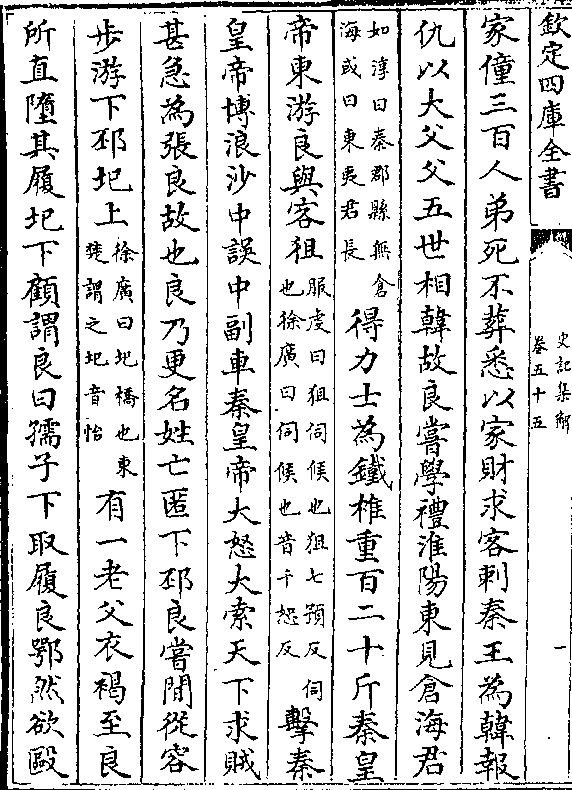 欽定四庫全書
史記集解
卷五十五
一
家僮三百人弟死不葬悉以家財求客刺秦王為韓報
仇以大父父五世相韓故良嘗學禮淮陽東見倉海君
如淳曰秦郡縣無倉
海或曰東夷君長
得力士為鐵椎重百二十斤秦皇
帝東游良與客狙
服虔曰狙伺候也狙七預反伺
也徐廣曰伺候也音千恕反
擊秦
皇帝博浪沙中誤中副車秦皇帝大怒大索天下求賊
甚急為張良故也良乃更名姓亡匿下邳良嘗閒從容
步游下邳圯上
徐廣曰圯橋也東
楚謂之圯音怡
有一老父衣褐至良
所直墮其履圯下顧謂良曰孺子下取履良鄂然欲毆